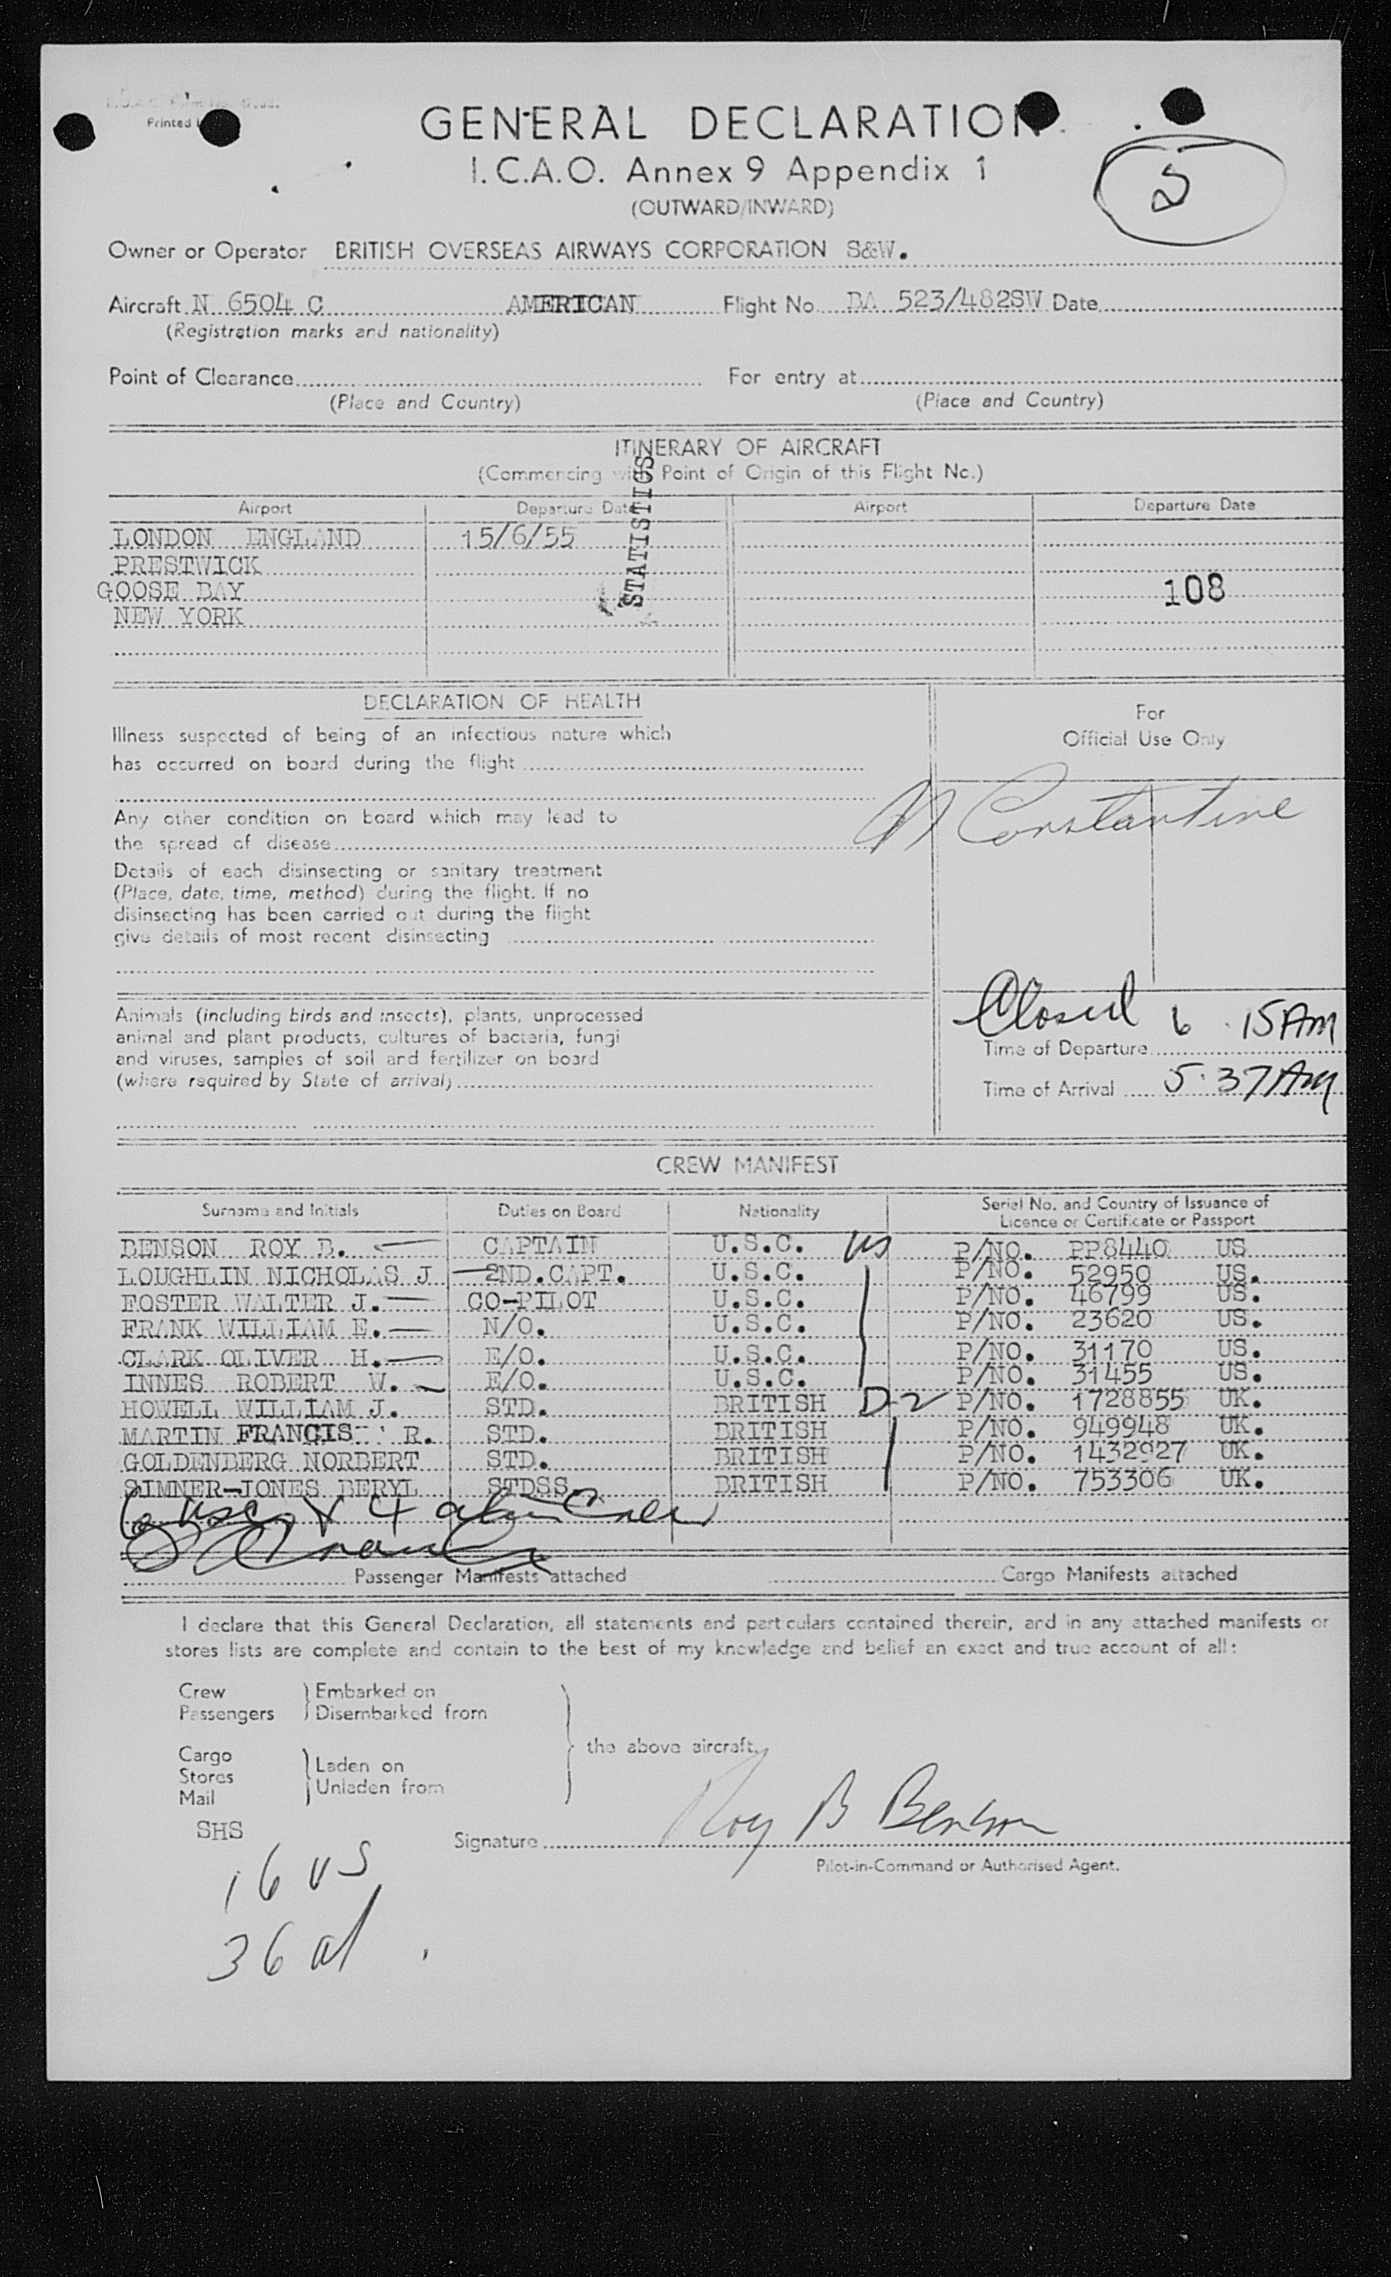 Printed
GENERAL DECLARATION
I.C.A.O. Annex 9 Appendix 1
(OUTWARD/INWARD)
5
Owner or Operator BRITISH OVERSEAS AIRWAYS CORPORATION S&W.
Aircraft N 6504 C AMERICAN Flight No. BA 523/482SW Date
(Registration marks and nationality)
Point of Clearance For entry at
(Place and Country) (Place and Country)
ITINERARY OF AIRCRAFT
(Commencing with Point of Origin of this Flight No.)
STATISTICS
Airport Departure Date Airport Departure Date
LONDON ENGLAND 15/6/55
PRESTWICK
GOOSE BAY 108
NEW YORK
DECLARATION OF HEALTH
Illness suspected of being of an infectious nature which
has occurred on board during the flight
Any other condition on board which may lead to
the spread of disease
Details of each disinsecting or sanitary treatment
(Place, date, time, method) during the flight. If no
disinsecting has been carried out during the flight
give details of most recent disinsecting
For
Official Use Only
Constantine
Animals (including birds and insects), plants, unprocessed
animal and plant products, cultures of bacteria, fungi
and viruses, samples of soil and fertilizer on board
(where required by State of arrival)
Closed 6 15 AM
Time of Departure
Time of Arrival 5.37 AM
CREW MANIFEST
Surname and Initials Duties on Board Nationality Serial No. and Country of Issuance of Licence or Certificate or Passport
BENSON ROY B. — CAPTAIN U.S.C. US P/NO. PP8440 US
LOUGHLIN NICHOLAS J — 2ND.CAPT. U.S.C. P/NO. 52950 US.
FOSTER WALTER J. — CO-PILOT U.S.C. P/NO. 46799 US.
FRANK WILLIAM E. — N/O. U.S.C. P/NO. 23620 US.
CLARK OLIVER H. — E/O. U.S.C. P/NO. 31170 US.
INNES ROBERT W. — E/O. U.S.C. P/NO. 31455 US.
HOWELL WILLIAM J. STD. BRITISH D-2 P/NO. 1728855 UK.
MARTIN FRANCIS R. STD. BRITISH P/NO. 949948 UK.
GOLDENBERG NORBERT STD. BRITISH P/NO. 1432927 UK.
SIMNER-JONES BERYL STDSS. BRITISH P/NO. 753306 UK.
6 usc & 4 alien Crew
Passenger Manifests attached Cargo Manifests attached
I declare that this General Declaration, all statements and particulars contained therein, and in any attached manifests or
stores lists are complete and contain to the best of my knowledge and belief an exact and true account of all:
Crew
Passengers
Embarked on
Disembarked from
Cargo
Stores
Mail
Laden on
Unladen from
the above aircraft.
SHS
Signature Roy B Benson
Pilot-in-Command or Authorised Agent.
16 US
36 al